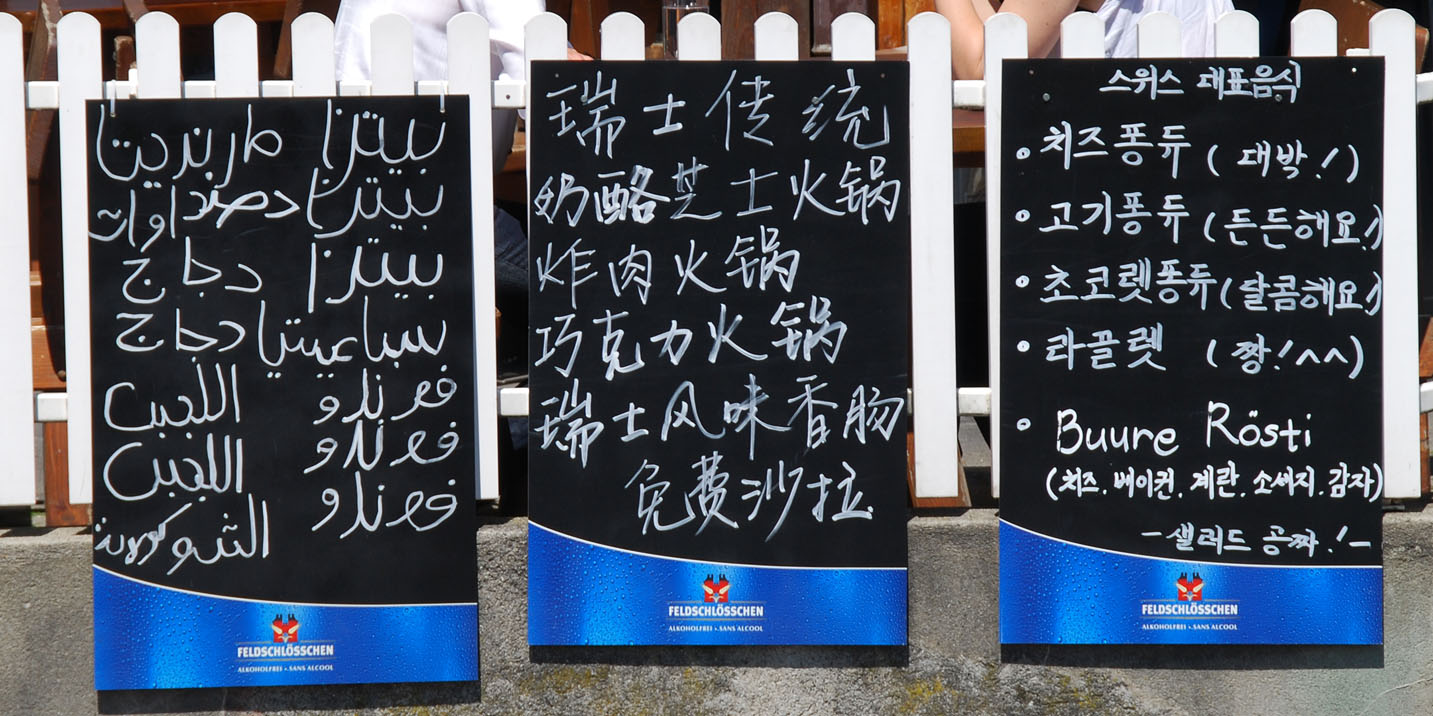 بيتزا مارنريتا
بيتزا دصداوات
بيتزا دجاج
سباعيتيا دجاج
فوندو اللجبن
فوندو اللجبن
فوندو الشوكولاتة
FELDSCHLÖSSCHEN
ALKOHOLFREI • SANS ALCOOL
瑞士传统
奶酪芝士火锅
炸肉火锅
巧克力火锅
瑞士风味香肠
免费沙拉
FELDSCHLÖSSCHEN
ALKOHOLFREI • SANS ALCOOL
스위스 대표음식
치즈퐁듀 (대박!)
고기퐁듀 (든든해요!)
초코렛퐁듀 (달콤해요!)
라클렛 (짱!^^)
Buure Rösti
(치즈. 베이컨. 계란. 소세지. 감자)
- 샐러드 공짜! -
FELDSCHLÖSSCHEN
ALKOHOLFREI • SANS ALCOOL